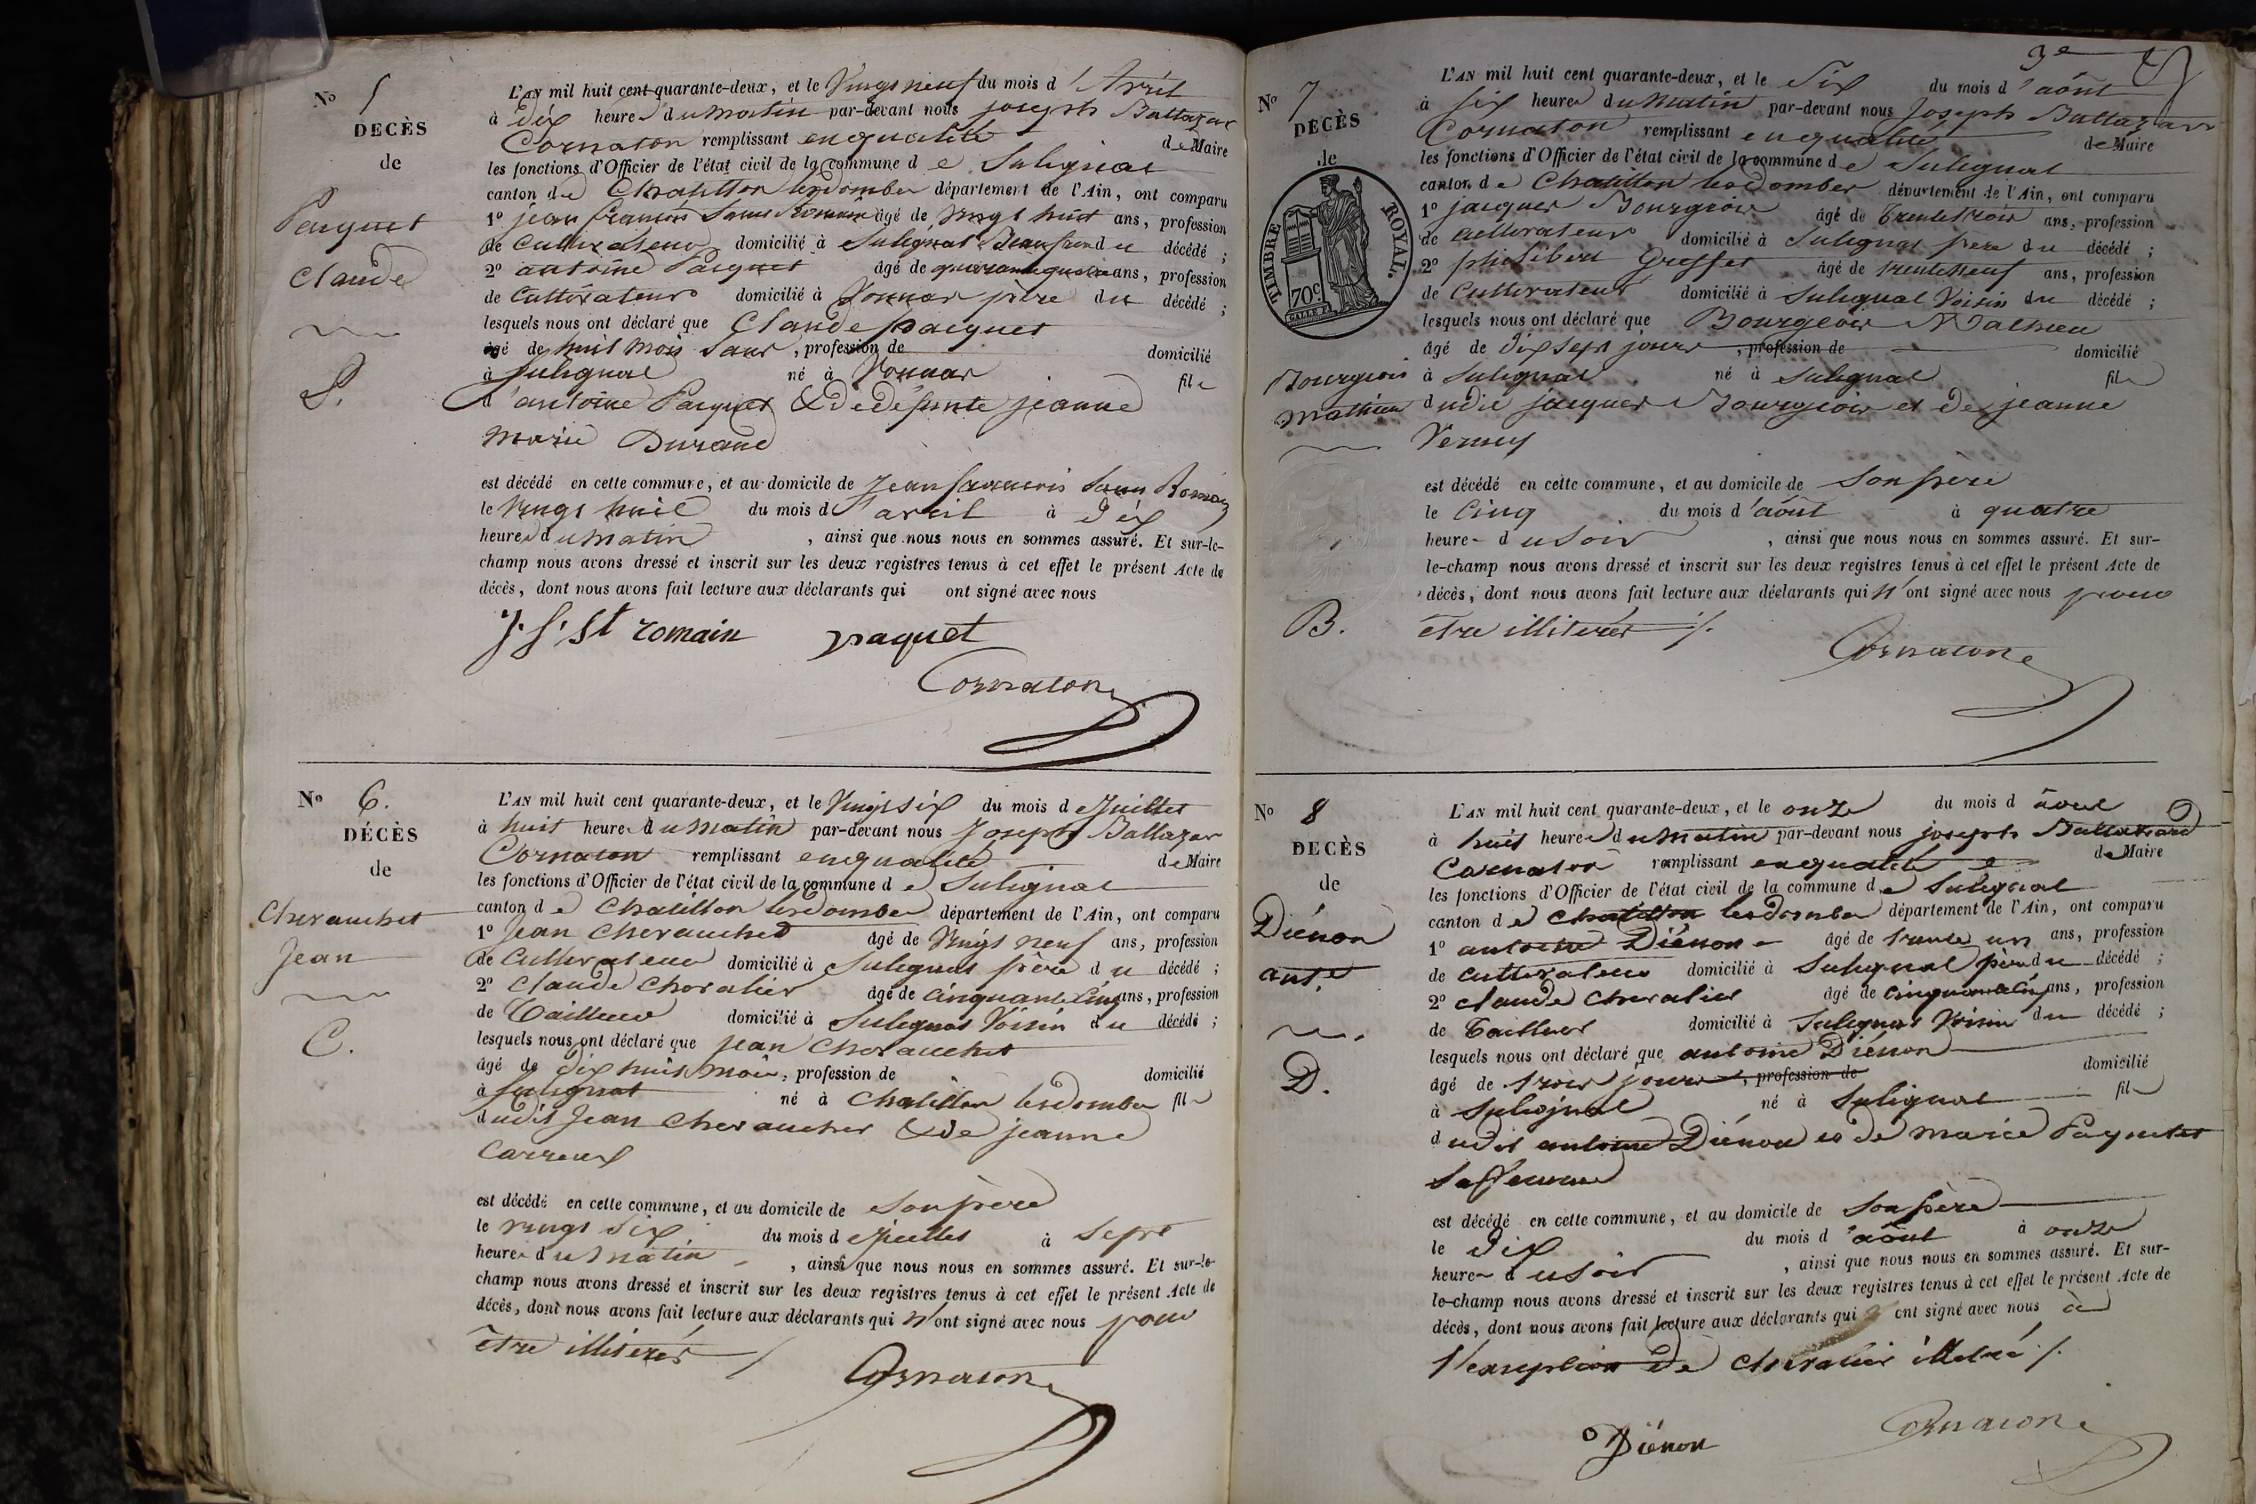 No 5
DECÈS
de
Paquet
Claude
P.
L'AN mil huit cent quarante-deux, et le Vingt neuf du mois d'Avril
à dix heures du Matin par-devant nous joseph Baltazar
Cornaton remplissant en qualité de Maire
les fonctions d'Officier de l'état civil de la commune de Sulignat
canton de Chatillon lesdombes département de l'Ain, ont comparu
1o jean françois Saint Romain âgé de vingt huit ans, profession
de Cultivateur domicilié à Sulignat Beaufrere du décédé ;
2o antoine Paquet âgé de quarante quatre ans, profession
de Cultivateur domicilié à Vonnas père du décédé ;
lesquels nous ont déclaré que Claude paquet
âgé de huit mois , profession de domicilié
à Sulignat né à Vonnas fils
d'antoine Paquet & de défunte jeanne
Marie Durand
est décédé en cette commune, et au domicile de Jean francois Saint Romain
le Vingt huit du mois d'avril à dix
heures du Matin , ainsi que nous nous en sommes assuré. Et sur-le-
champ nous avons dressé et inscrit sur les deux registres tenus à cet effet le présent Acte de
décès, dont nous avons fait lecture aux déclarants qui ont signé avec nous
J. f. St romain paquet
Cornaton
No 6.
DÉCÈS
de
Cherauchet
Jean
C.
L'AN mil huit cent quarante-deux, et le Vingt six du mois de Juillet
à huit heures du Matin par-devant nous Joseph Baltazar
Cornaton remplissant en qualité de Maire
les fonctions d'Officier de l'état civil de la commune de Sulignat
canton de Chatillon lesdombes département de l'Ain, ont comparu
1o Jean Cherauchet âgé de Vingt neuf ans, profession
de Cultivateur domicilié à Sulignat père du décédé ;
2o Claude Chevalier âgé de cinquante cinq ans, profession
de Tailleur domicilié à Sulignat Voisin du décédé ;
lesquels nous ont déclaré que jean Cherauchet
âgé de dix huit mois, profession de domicilié
à Sulignat né à Chatillon lesdombes fils
dudit Jean Cherauchet & de jeanne
Carreux
est décédé en cette commune, et au domicile de son père
le vingt six du mois de juillet à Sept
heures du Matin , ainsi que nous nous en sommes assuré. Et sur-le-
champ nous avons dressé et inscrit sur les deux registres tenus à cet effet le présent Acte de
décès, dont nous avons fait lecture aux déclarants qui n'ont signé avec nous pour
être illitérés
Cornaton
3e
No 7
DECÈS
de
TIMBRE ROYAL.
70c.
Bourgeois
Mathieu
B.
L'AN mil huit cent quarante-deux, et le Six du mois d'août
à six heures du Matin par-devant nous Joseph Baltazar
Cornaton remplissant en qualité de Maire
les fonctions d'Officier de l'état civil de la commune de Sulignat
canton de Chatillon lesdombes département de l'Ain, ont comparu
1o jacques Bourgeois âgé de trente trois ans, profession
de cultivateur domicilié à Sulignat père du décédé ;
2o philibert Greffet âgé de trente neuf ans, profession
de Cultivateur domicilié à Sulignat Voisin du décédé ;
lesquels nous ont déclaré que Bourgeois Mathieu
âgé de dix sept jours , profession de domicilié
à Sulignat né à Sulignat fils
dudit jacques Bourgeois et de jeanne
est décédé en cette commune, et au domicile de son père
le Cinq du mois d'août à quatre
heures du soir , ainsi que nous nous en sommes assuré. Et sur-
le-champ nous avons dressé et inscrit sur les deux registres tenus à cet effet le présent Acte de
décès, dont nous avons fait lecture aux déclarants qui n'ont signé avec nous pour
être illitérés
Cornaton
No 8
DECÈS
de
Diénon
ant.e
D.
L'AN mil huit cent quarante-deux, et le onze du mois d août
à huit heures du Matin par-devant nous joseph Baltazard
Cornaton remplissant en qualité de Maire
les fonctions d'Officier de l'état civil de la commune de Sulignat
canton de Chatillon lesdombes département de l'Ain, ont comparu
1o antoine Diénon âgé de trente un ans, profession
de cultivateur domicilié à Sulignat père du décédé ;
2o claude chevalier âgé de cinquante cinq ans, profession
de Tailleur domicilié à Sulignat Voisin du décédé ;
lesquels nous ont déclaré que antoine Diénon
âgé de trois jours , profession de domicilié
à Sulignat né à Sulignat fils
dudit antoine Diénon et de marie Paquet
sa femme
est décédé en cette commune, et au domicile de son père
le dix du mois d'août à onze
heures du soir , ainsi que nous nous en sommes assuré. Et sur-
le-champ nous avons dressé et inscrit sur les deux registres tenus à cet effet le présent Acte de
décès, dont nous avons fait lecture aux déclarants qui ont signé avec nous à
l'exseption de chevalier illetré
Diénon Cornaton